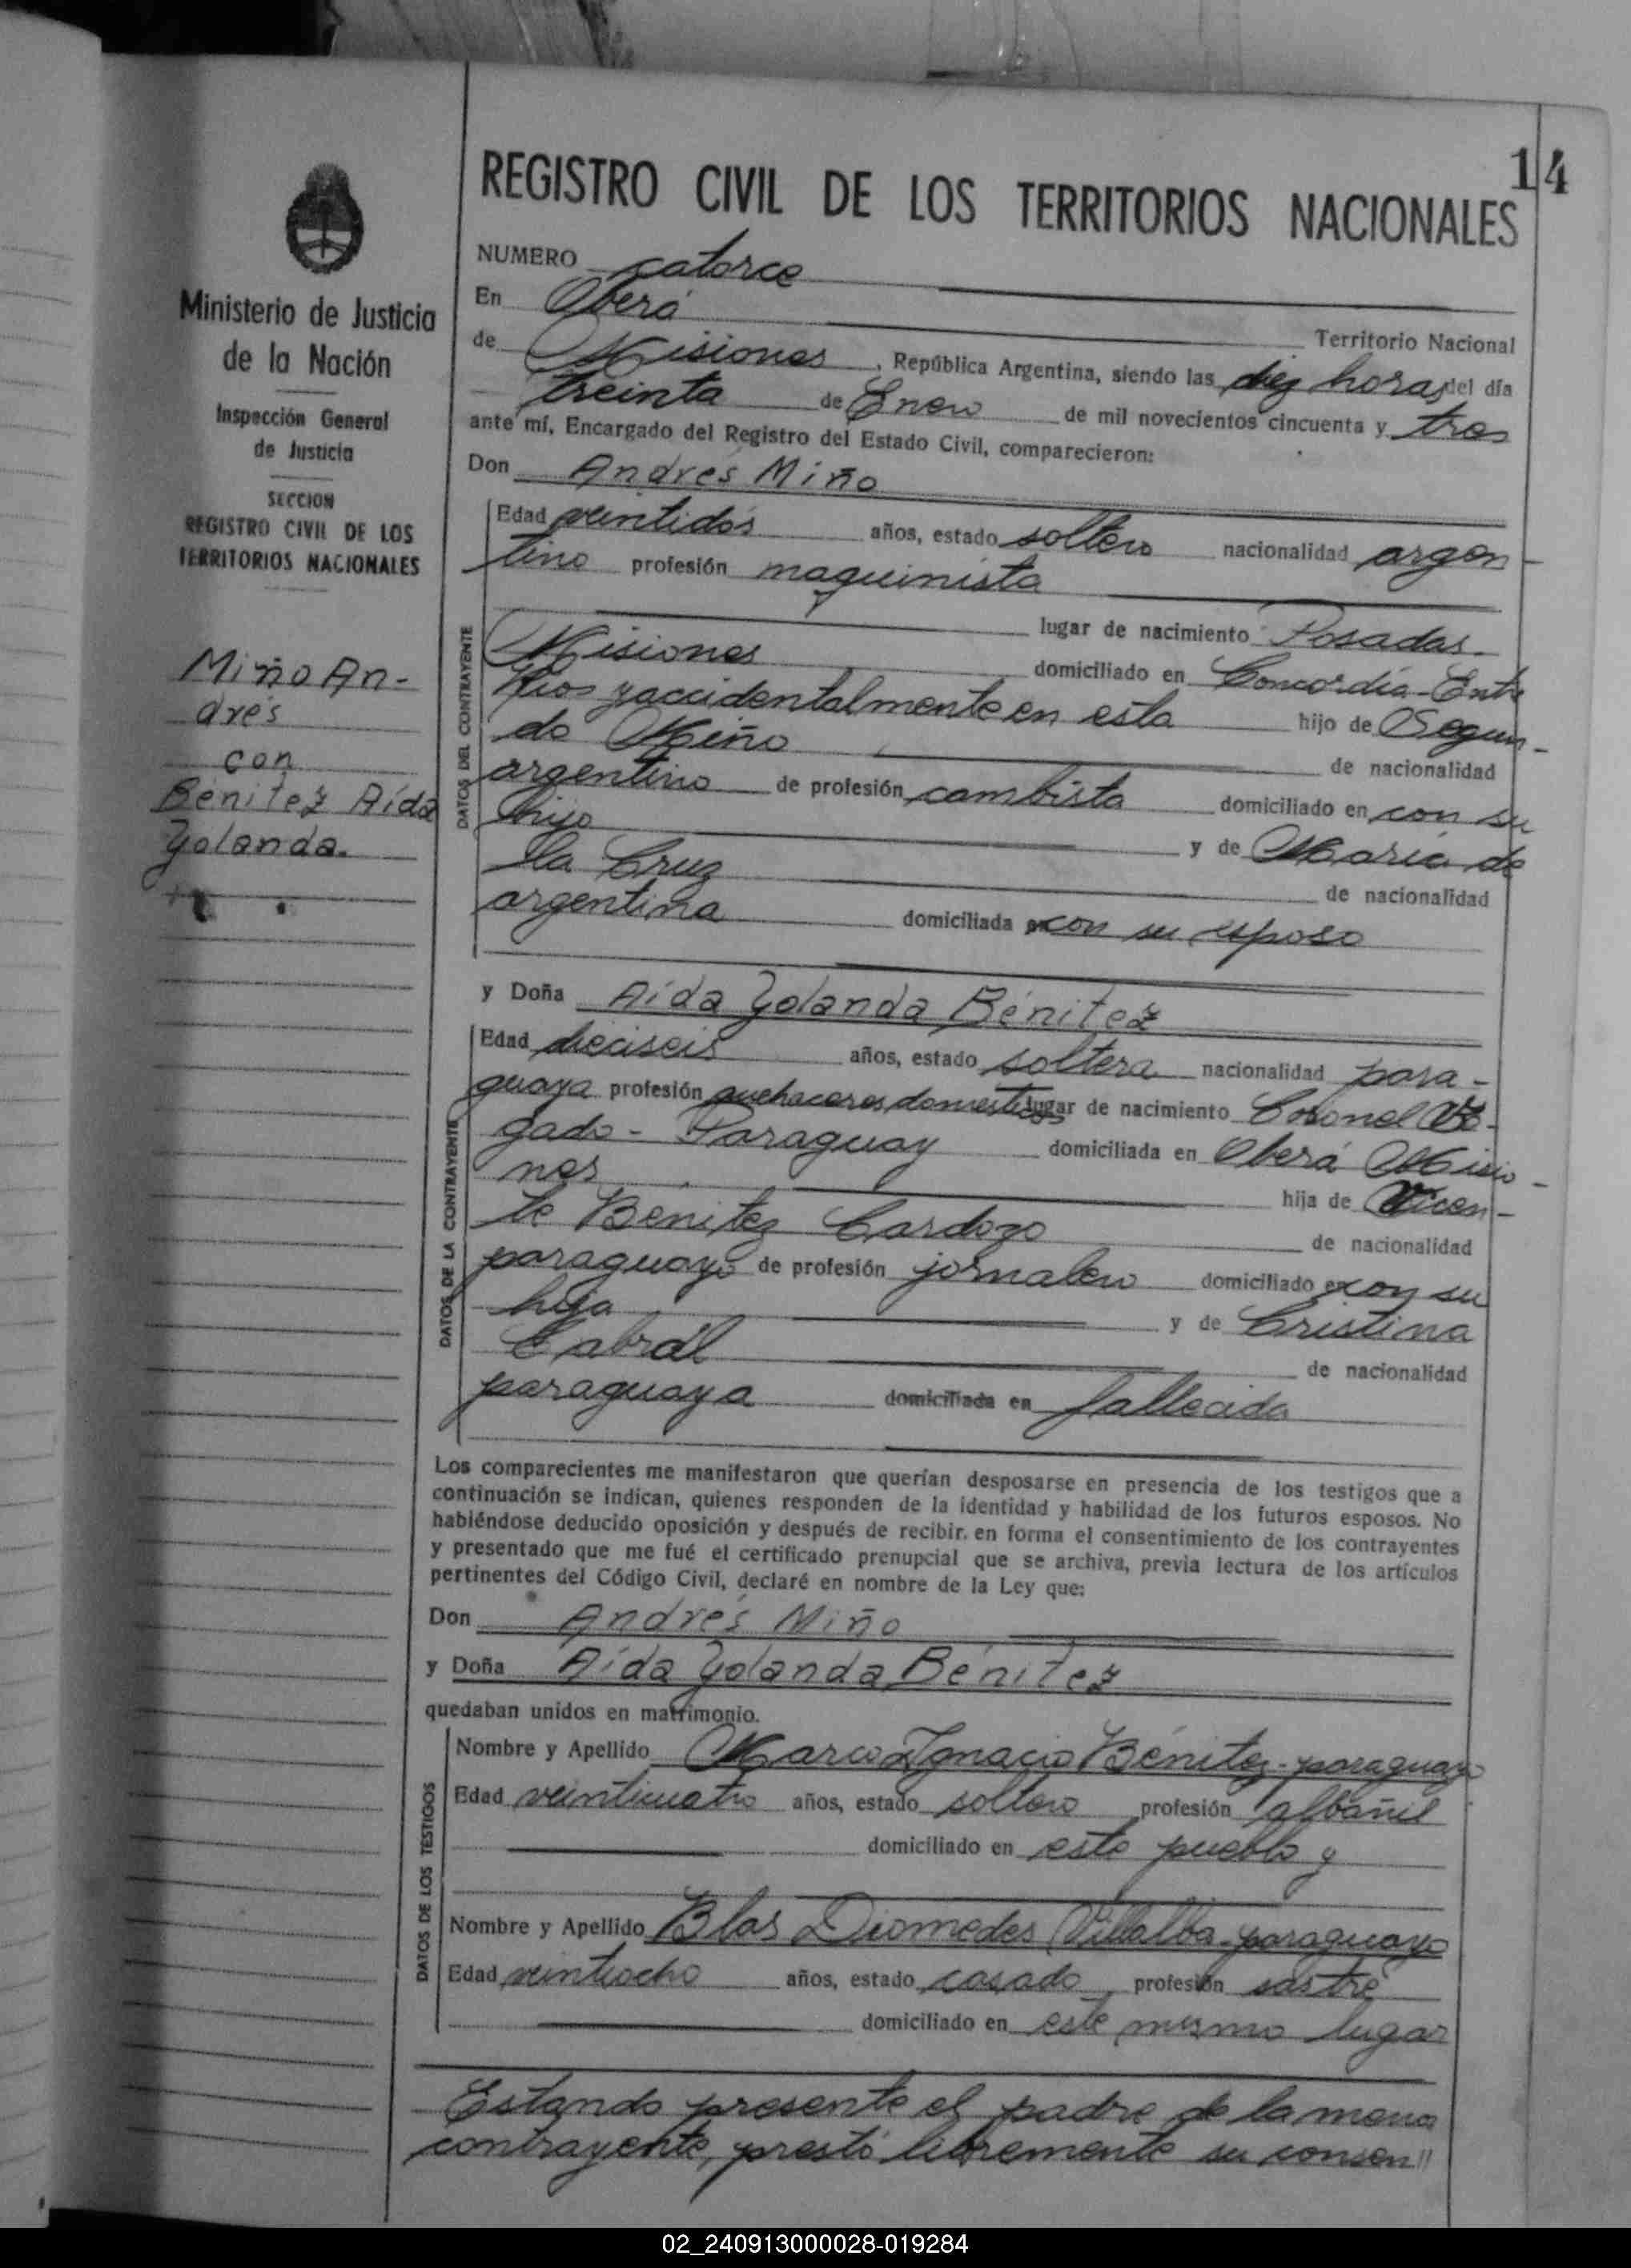 14
REGISTRO CIVIL DE LOS TERRITORIOS NACIONALES
Ministerio de Justicia
de la Nación
Inspección General
de Justicia
SECCION
REGISTRO CIVIL DE LOS
TERRITORIOS NACIONALES
Miño An-
drés
con
Bénitez Aída
Yolanda.
NUMERO catorce
En Oberá Territorio Nacional
de Misiones, República Argentina, siendo las diez horas del día
treinta de Enero de mil novecientos cincuenta y tres
ante mí, Encargado del Registro del Estado Civil, comparecieron:
Don Andrés Miño
DATOS DEL CONTRAYENTE
Edad veintidós años, estado soltero nacionalidad argen-
tino profesión maquinista
lugar de nacimiento Posadas-
Misiones domiciliado en Concordia-Entre
Rios y accidentalmente en esta hijo de Segun-
do Miño de nacionalidad
argentino de profesión cambista domiciliado en con su
hijo y de María de
la Cruz de nacionalidad
argentina domiciliada en con su esposo
y Doña Aída Yolanda Bénitez
DATOS DE LA CONTRAYENTE
Edad dieciseis años, estado soltera nacionalidad para-
guaya profesión quehaceres domesticos lugar de nacimiento Coronel Bo-
gado - Paraguay domiciliada en Oberá Misio-
nes hija de Vicen-
te Bénitez Cardozo de nacionalidad
paraguayo de profesión jornalero domiciliado en con su
hija y de Cristina
Cabral de nacionalidad
paraguaya domiciliada en fallecida
Los comparecientes me manifestaron que querían desposarse en presencia de los testigos que a
continuación se indican, quienes responden de la identidad y habilidad de los futuros esposos. No
habiéndose deducido oposición y después de recibir en forma el consentimiento de los contrayentes
y presentado que me fué el certificado prenupcial que se archiva, previa lectura de los artículos
pertinentes del Código Civil, declaré en nombre de la Ley que:
Don Andrés Miño
y Doña Aída Yolanda Bénitez
quedaban unidos en matrimonio.
DATOS DE LOS TESTIGOS
Nombre y Apellido Marcos Ignacio Bénitez-paraguayo
Edad veinticuatro años, estado soltero profesión albañil
domiciliado en este pueblo y
Nombre y Apellido Blas Diomedes Villalba-paraguayo
Edad veintiocho años, estado casado profesión sastre
domiciliado en este mismo lugar
Estando presente el padre de la menor
contrayente, prestó libremente su consen//
02_240913000028-019284